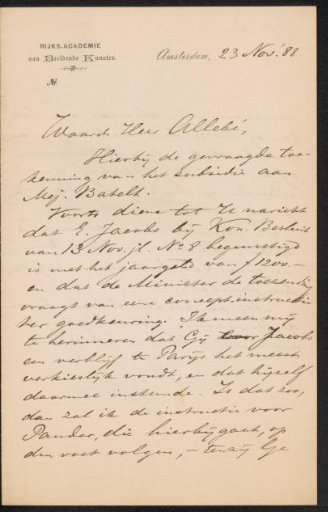 RIJKS-ACADEMIE
van Beeldende Kunsten.
Amsterdam, 23 Nov. '88
No
Waarde Heer Allebé,
Hierbij de gevraagde toe-
kenning van het subsidie aan
Mej. Bakelt.
Voorts diene tot U naricht
dat E. Jacobs bij Kon. Besluit
van 13 Nov. jl. No 8 begunstigd
is met het jaargeld van f 1200.—
en dat de Minister de toezending
vraagt van eene conceptinstructie
ter goedkeuring. Ik meen mij
te herinneren dat Gij voor Jacobs
een verblijf te Parijs het meest
verkieslijk vondt, en dat hij zelf
daarmee instemde. Is dat zoo,
dan zal ik de instructie voor
Pander, die hierbij gaat, op
den voet volgen, — tenzij Ge